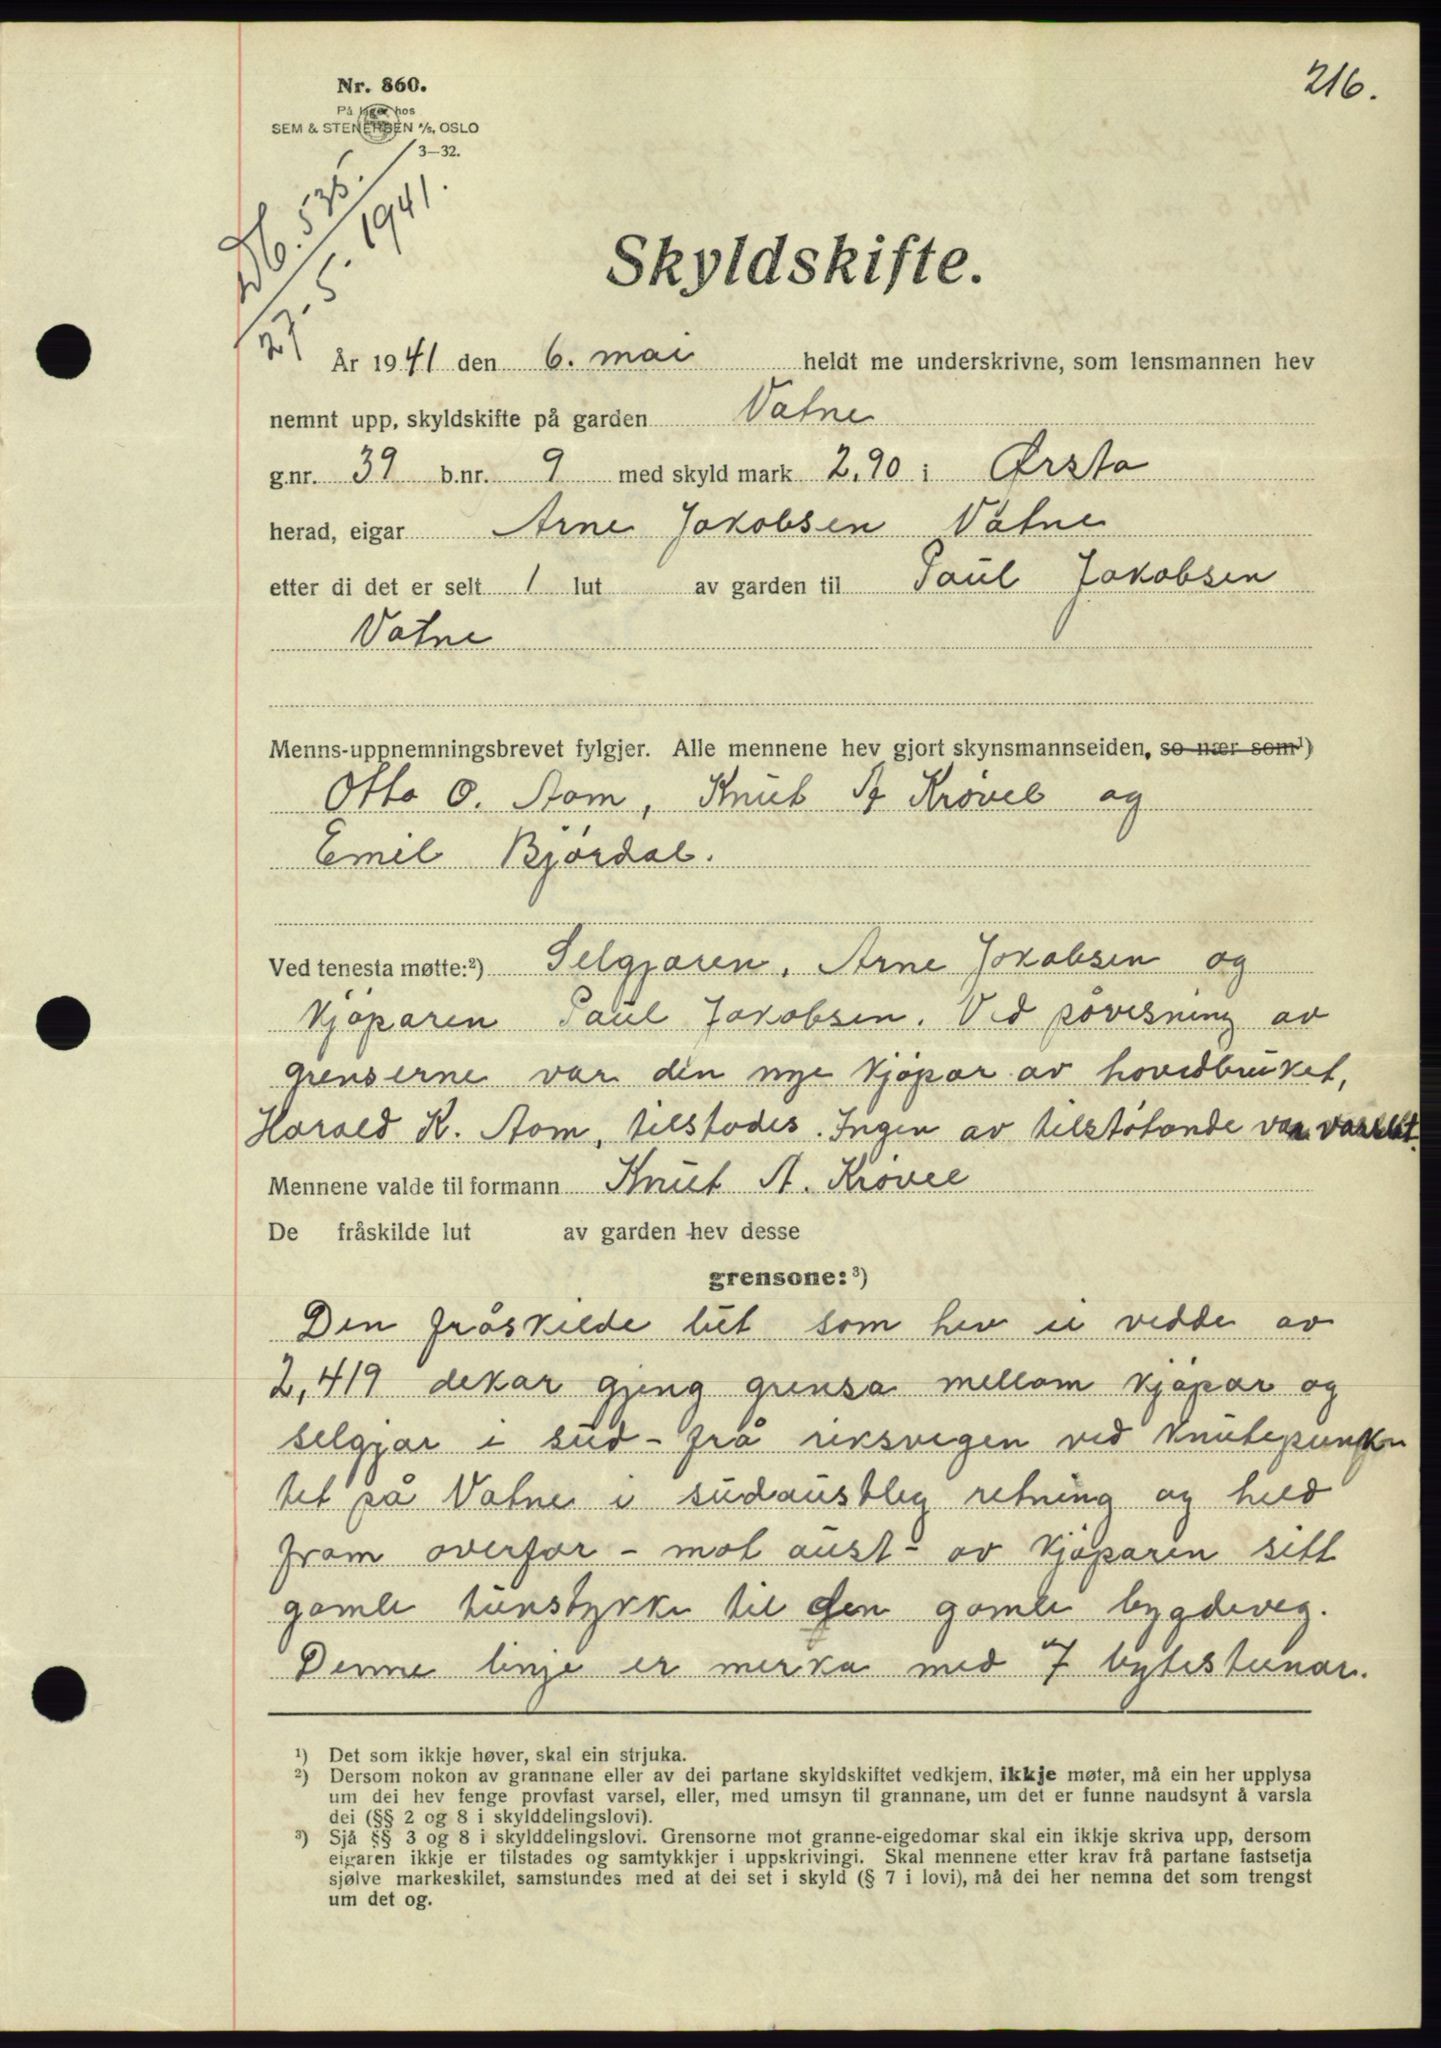 216.
Nr. 860.
På lager hos
SEM & STENERSEN A/S, OSLO
3—32.
Db. 535.
27-5-1941.
Skyldskifte.
År 1941 den 6. mai heldt me underskrivne, som lensmannen hev
nemnt upp, skyldskifte på garden Vatne
g.nr. 39 b.nr. 9 med skyld mark 2,90 i Ørsta
herad, eigar Arne Jakobsen Vatne
etter di det er selt 1 lut av garden til Paul Jakobsen
Vatne
Menns-uppnemningsbrevet fylgjer. Alle mennene hev gjort skynsmannseiden, so nær som¹)
Otto O. Aam, Knut A Krøvel og
Emil Bjørdal.
Ved tenesta møtte:²) Selgjaren, Arne Jakobsen og
kjøparen Paul Jakobsen. Ved påvisning av
grenserne var den nye kjøpar av hovedbruket,
Harald K. Aam, tilstades. Ingen av tilstøtande var varslet.
Mennene valde til formann Knut A. Krøvel
De fråskilde lut av garden hev desse
grensone:³)
Den fråskilde lut som hev ei vedde av
2,419 dekar gjeng grensa mellom kjøpar og
selgjar i sud - frå riksvegen ved knutepunk-
tet på Vatne i sudaustleg retning og held
fram overfor - mot aust - av kjøparen sitt
gamle tunstykke til den gamle bygdeveg.
Denne linje er merka med 7 bytesteinar.
¹) Det som ikkje høver, skal ein strjuka.
²) Dersom nokon av grannane eller av dei partane skyldskiftet vedkjem, ikkje møter, må ein her upplysa
um dei hev fenge provfast varsel, eller, med umsyn til grannane, um det er funne naudsynt å varsla
dei (§§ 2 og 8 i skylddelingslovi).
³) Sjå §§ 3 og 8 i skylddelingslovi. Grensorne mot granne-eigedomar skal ein ikkje skriva upp, dersom
eigaren ikkje er tilstades og samtykkjer i uppskrivingi. Skal mennene etter krav frå partane fastsetja
sjølve markeskilet, samstundes med at dei set i skyld (§ 7 i lovi), må dei her nemna det som trengst
um det og.